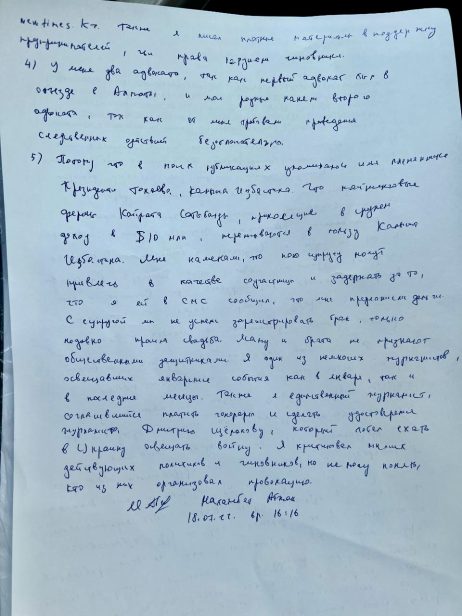 newtimes.kz. Также я писал платные материалы в поддержку
предпринимателей, чьи права нарушают чиновники.
4) У меня два адвоката, так как первый адвокат был в
отъезде в Алматы, и мои родные наняли второго
адвоката, так как от меня требовали проведения
следственных действий безотлагательно.
5) Потому что в моих публикациях упоминался имя племянника
Президента Токаева, Каныша Избастина. Что майнинговые
фермы Кайрата Сатыбалды, приносящие в
доход в $10 млн, переписываются в пользу Каныша
Избастина. Мне намекали, что мою супругу могут
привлечь в качестве соучастницы и задержать за то,
что я ей в СМС сообщил, что мне предложили деньги.
С супругой мы не успели зарегистрировать брак, только
недавно прошла свадьба. Маму и брата не признают
общественными защитниками. Я один из немногих журналистов,
освещавших январские события как в январе, так и
в последние месяцы. Также я единственный журналист,
согласившийся платить гонорары и сделать удостоверение
журналиста Дмитрию Щёлокову, который хотел ехать
в Украину освещать войну. Я критиковал многих
действующих политиков и чиновников, но не могу понять,
кто из них организовал провокацию.
Махамбет Абжан
18.07.22 вр. 16:16